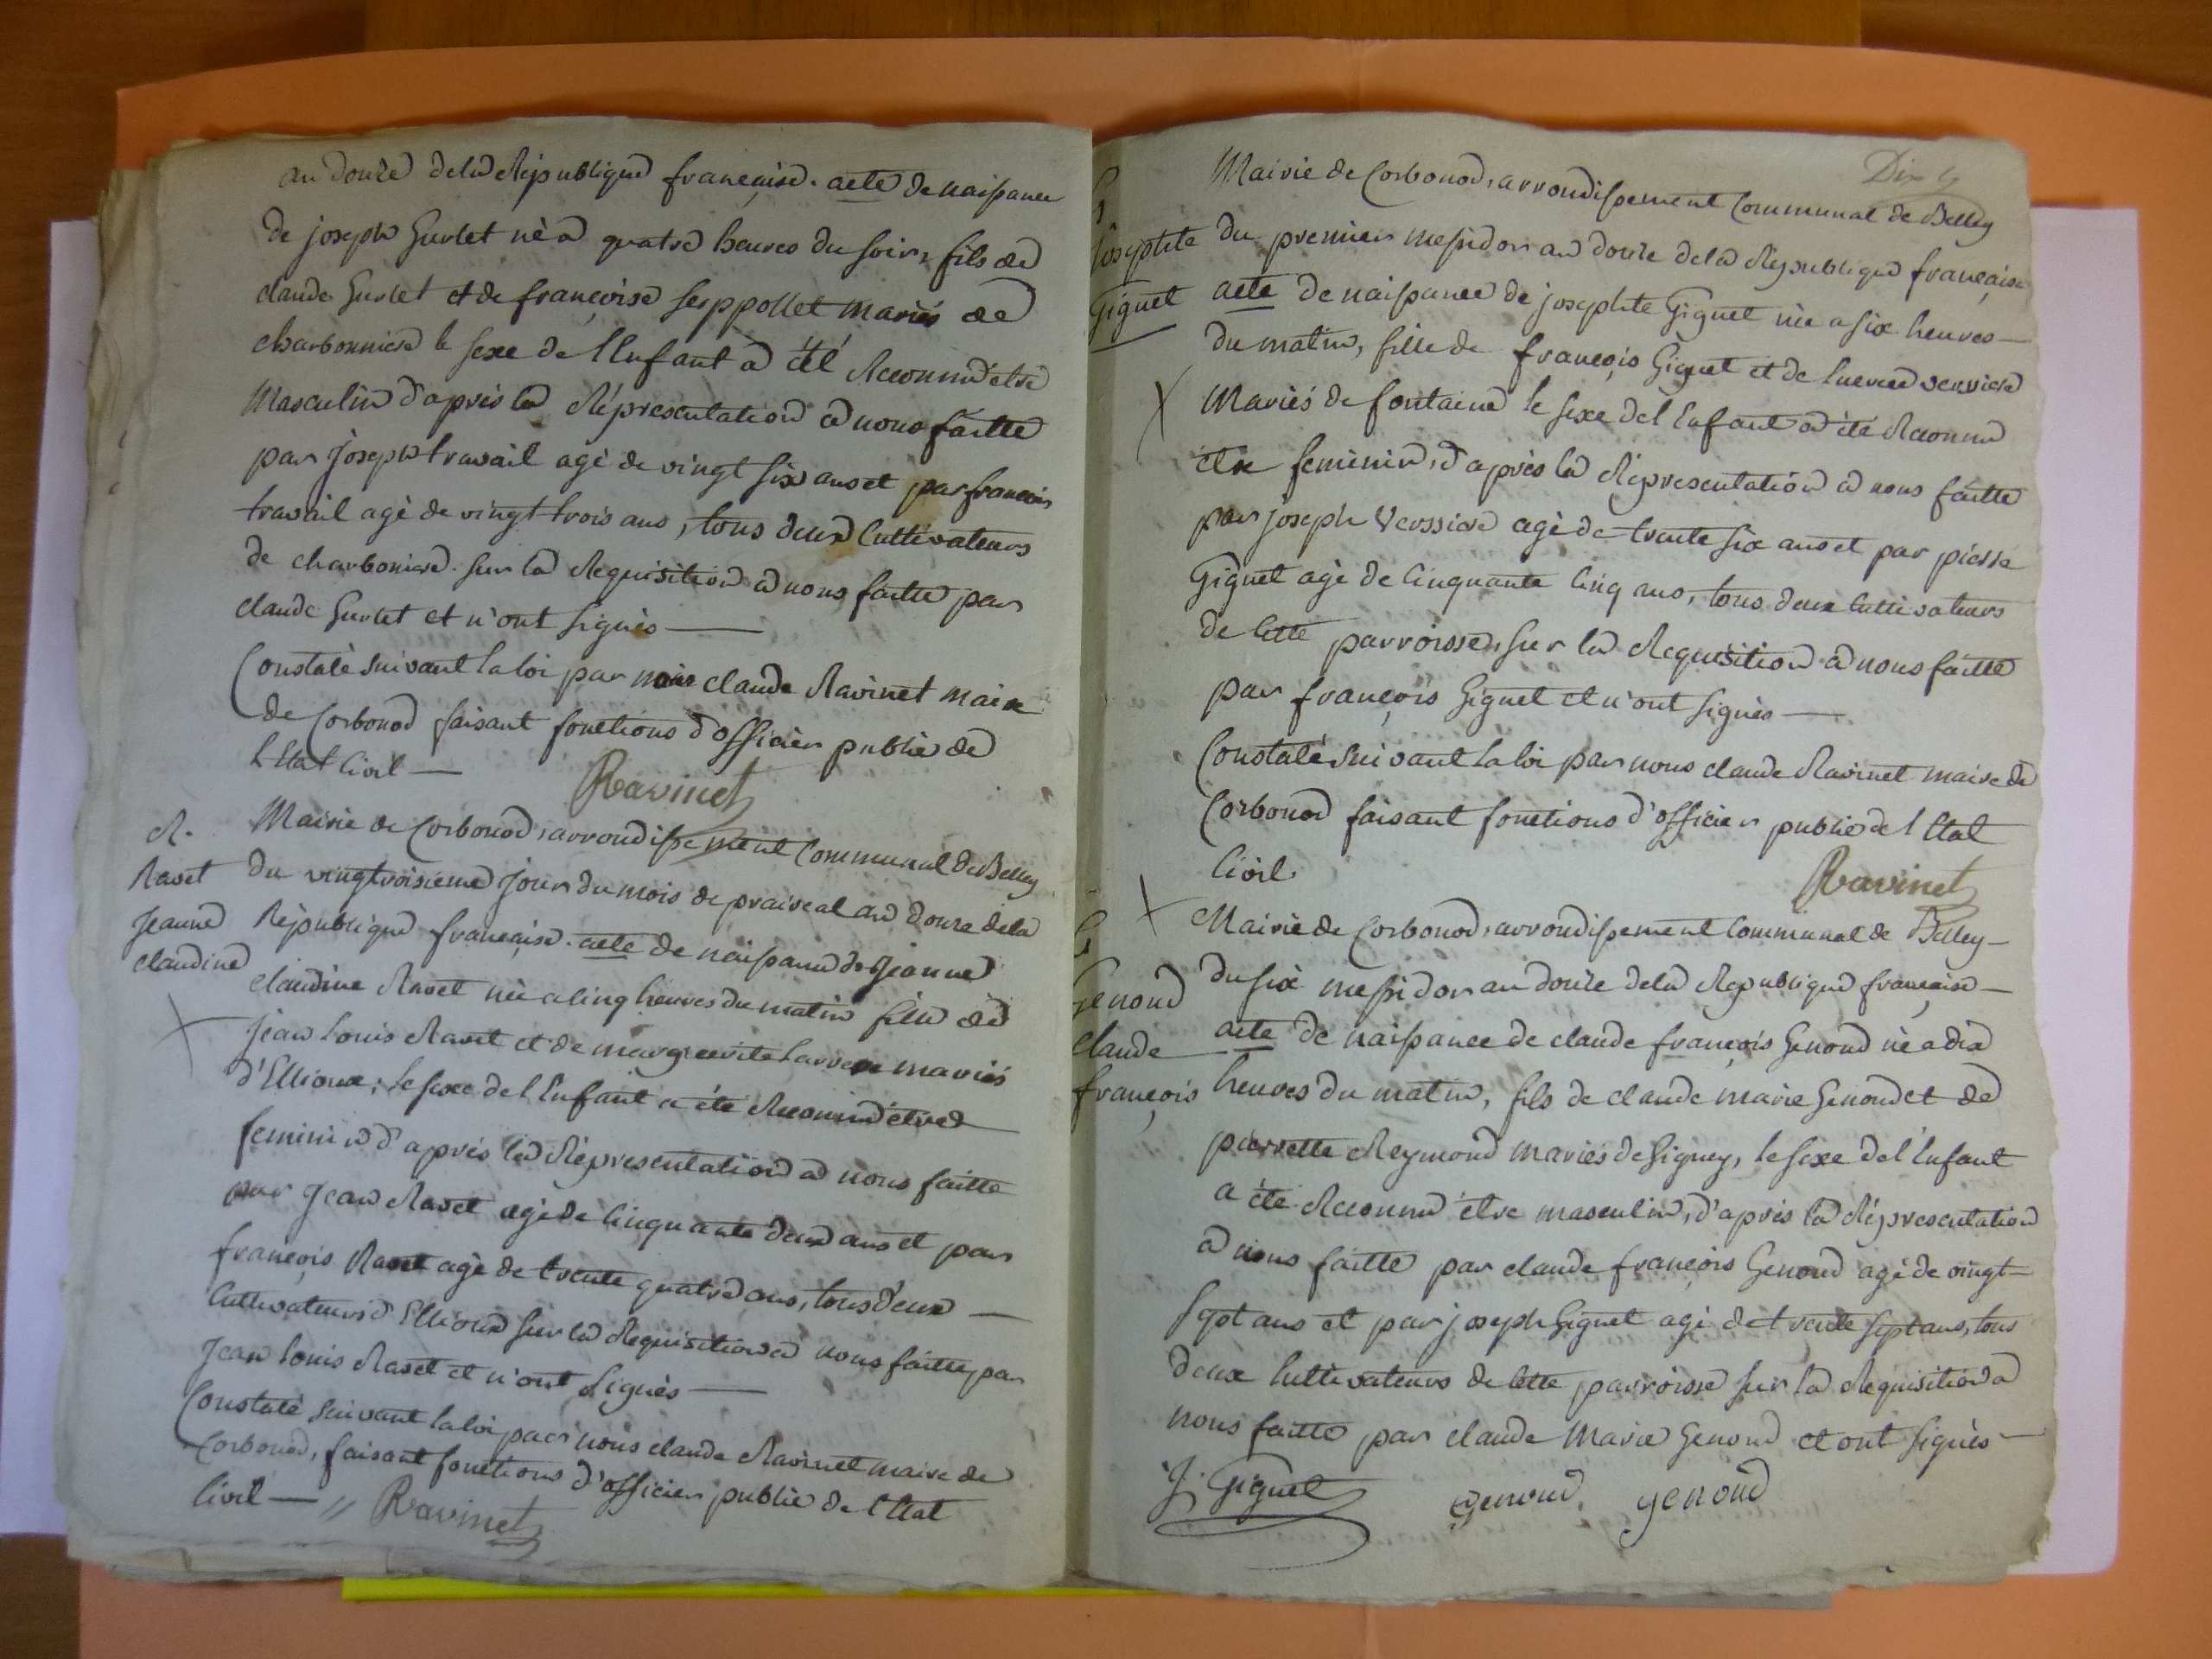 an douze de la République française. acte de naissance
de joseph Gurlet né a quatre heures du soir, fils de
claude Gurlet et de françoise serppollet mariés de
charbonniere le sexe de l'Enfant a été Reconnu etre
Masculin d'après la Répresentation a nous faitte
par joseph travail agé de vingt six ans et par francois
travail agé de vingt trois ans, tous deux Cultivateurs
de charboniere. sur la Requisition a nous faitte par
claude Gurlet et n'ont signés —
Constaté suivant la loi par nous claude Ravinet maire
de Corbonod faisant fonctions d'officier public de
l'Etat Civil — Ravinet
R.
Ravet
Jeanne
claudine
Mairie de Corbonod, arrondissement Communal de Belley
du vingtroisieme jour du mois de praireal an douze de la
République française. acte de naissance de Jeanne
claudine Ravet née a Cinq heures du matin fille de
Jean Louis Ravet et de margueritte mariés
d'Ellioux; le sexe de l'Enfant a été Reconnu être
feminin d'après la Répresentation a nous faitte
par Jean Ravet agé de Cinquante deux ans et par
françois Ravet agé de trente quatre ans, tous deux —
Cultivateurs d'Ellioux sur la Requisition a nous faitte par
Jean Louis Ravet et n'ont signés —
Constaté suivant la loi par nous claude Ravinet maire de
Corbonod, faisant fonctions d'officier public de l'Etat
Civil — // Ravinet
G
josephte
Giguet
Mairie de Corbonod, arrondissement Communal de Belley
du premier messidor an douze de la République française
acte de naissance de josephte Giguet née a six heures —
du matin, fille de françois Giguet et de Lucrece verssiere
Mariés de fontaine le sexe de l'Enfant a été Reconnu
etre feminin, d'après la Répresentation a nous faitte
par joseph Verssiere agé de trente six ans et par pierre
Giguet agé de Cinquante Cinq ans, tous deux Cultivateurs
de Cette parroisse, sur la Requisition a nous faitte
par françois Giguet et n'ont signés —
Constaté suivant la loi par nous claude Ravinet maire de
Corbonod faisant fonctions d'officier public de l'Etat
Civil. Ravinet
G
Genoud
claude
françois
Mairie de Corbonod, arrondissement Communal de Belley —
du six messidor an douze de la Republique française —
acte de naissance de claude françois Genoud né a dix
heures du matin, fils de claude marie Genoud et de
pierrette Reymond mariés de Gigney, le sexe de l'Enfant
a été Reconnu être masculin, d'après la Répresentation
a nous faitte par claude françois Genoud agé de vingt —
sept ans et par joseph Giguet agé de trente sept ans, tous
deux Cultivateurs de Cette parroisse sur la Requisition a
nous faitte par claude Marie Genoud et ont signés —
J. Giguet Genoud. genoud